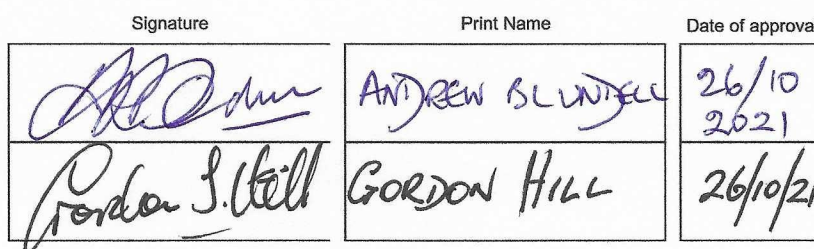 Signature Print Name Date of approva
ANDREW BLUNDELL 26/10
2021
Gordon J. Hill GORDON HILL 26/10/21